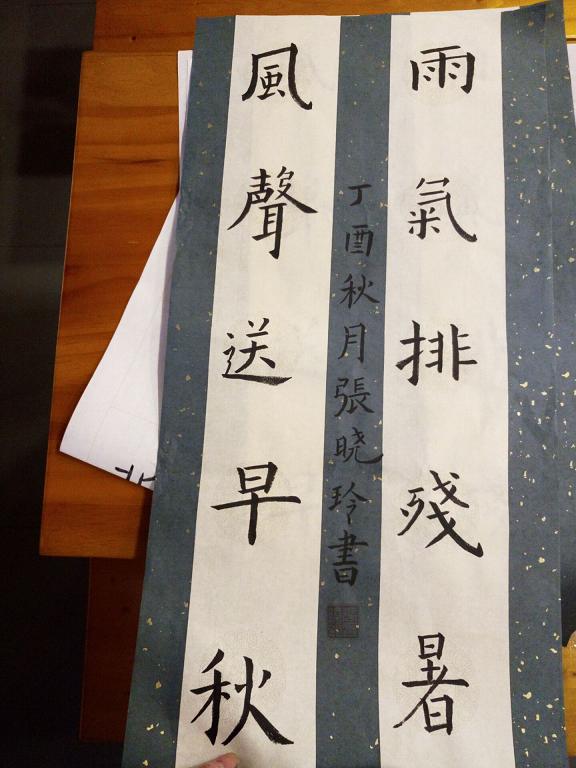 雨氣排殘暑
風聲送早秋
丁酉秋月張晓玲書